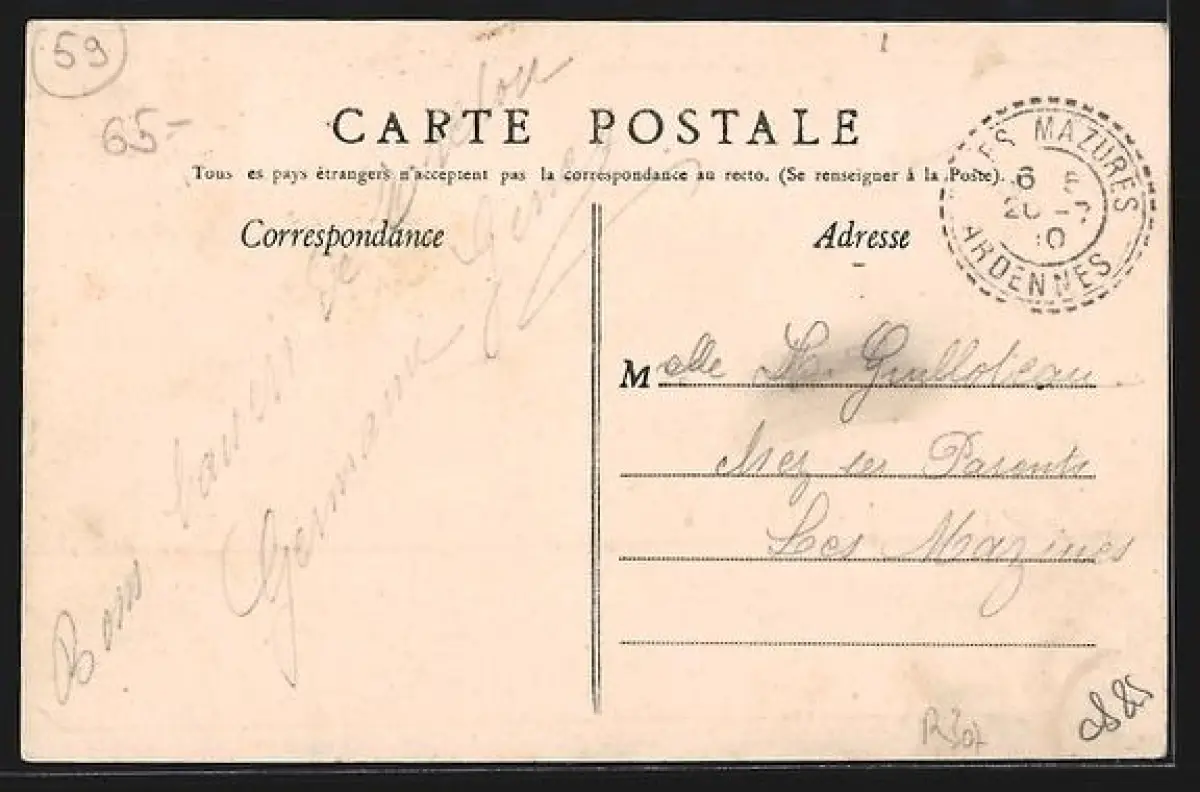 59
65-
CARTE POSTALE
Tous es pays étrangers n'acceptent pas la correspondance au recto. (Se renseigner à la Poste).
LES MAZURES
6
20
10
ARDENNES
Correspondance
Bons de
Germaine
Adresse
Melle Guilloteau
chez ses Parents
Les Mazures
R307